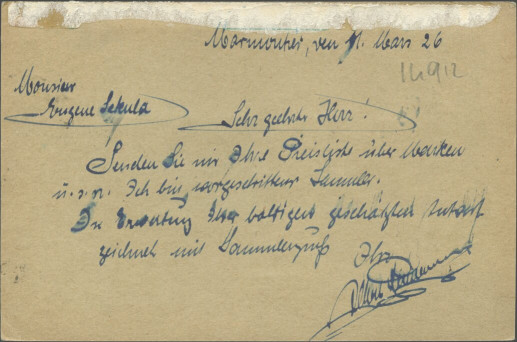 Marmoutier, den 11. Mars 26
14912
Monsieur
Eugene Sekula
Sehr geehrter Herr!
Senden Sie mir Ihre Preisliste über Marken
u.s.w. Ich bin vorgeschrittener Sammler.
In Erwartung Ihrer baldigen geschätzten Antwort
zeichnet mit Sammlergruß
Ihr